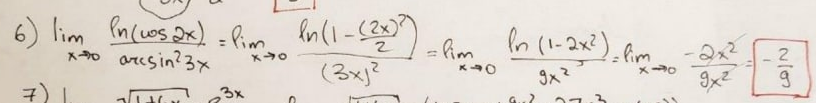 6) lim x→0 ln(cos 2x) / arcsin²3x = lim x→0 ln(1 - (2x)²/2) / (3x)² = lim x→0 ln(1-2x²) / 9x² = lim x→0 -2x² / 9x² = -2/9
7) 3x